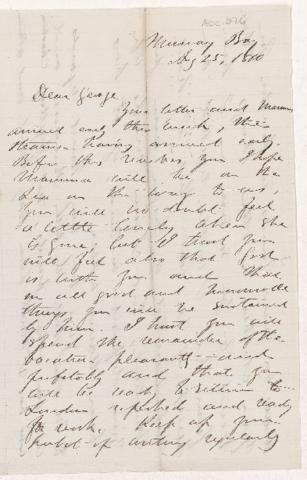 Acc 576
Murray Bay
Aug 25, 1880
Dear George
Your letter and Mamma's
arrived early this week, the
Steamer having arrived early.
Before this reaches you I hope
Mamma will be on the
Sea on the way to us,
you will no doubt feel
a little lonely when she
is gone, but I trust you
will feel also that God
is with you and that
in all good and honorable
things you will be sustained
by him. I trust you will
spend the remainder of the
vacation pleasantly and
profitably and that you
will be ready to return to
London refreshed and ready
for work. Keep up your
habit of writing regularly